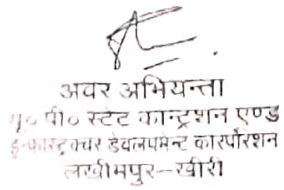 अवर अभियन्ता
यू० पी० स्टेट कान्ट्रशन एण्ड
इन्फास्ट्रक्चर डेवलपमेन्ट कारपोरेशन
लखीमपुर-खीरी